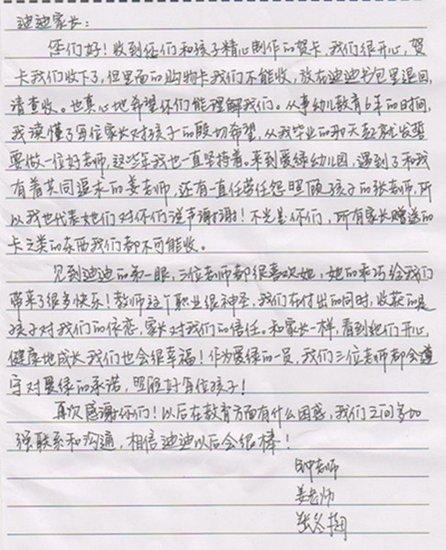 迪迪家长：
您们好！收到您们和孩子精心制作的贺卡，我们很开心，贺
卡我们收下了，但里面的购物卡我们不能收，放在迪迪书包里退回，
请查收。也真心地希望你们能理解我们。从事幼儿教育6年的时间，
我读懂了每位家长对孩子的殷切希望，从我毕业的那天起就发誓
要做一位好老师，这些年我也一直坚持着。来到爱绿幼儿园，遇到了和我
有着共同追求的姜老师，还有一直任劳任怨照顾孩子的张老师，所
以我也代表她们对你们说声谢谢！不光是你们，所有家长赠送的
卡之类的东西我们都不可能收。
见到迪迪的第一眼，三位老师都很喜欢她，她的乖巧给我们
带来了很多快乐！教师这个职业很神圣，我们在付出的同时，收获的是
孩子对我们的依恋，家长对我们的信任。和家长一样，看到他们开心，
健康地成长，我们也会很幸福！作为爱绿的一员，我们三位老师都会遵
守对爱绿的承诺，照顾好每位孩子！
再次感谢你们！以后在教育方面有什么困惑，我们之间多加
强联系和沟通，相信迪迪以后会很棒！
钟老师
姜老师
张冬梅